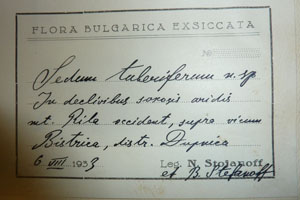 FLORA BULGARICA EXSICCATA
№
Sedum tuberiferum n. sp.
In declivibus saxosis aridis
mt. Rila occident, supra vicum
Bistrica, distr. Dupnica
6 VIII 1933 Leg. N. Stojanoff
et B. Stefanoff